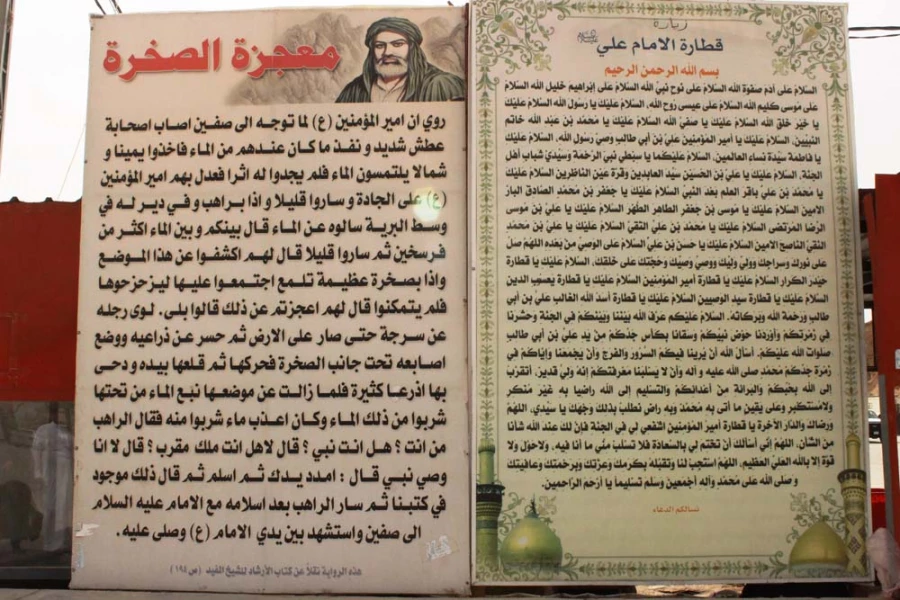 معجزة الصخرة
روي ان امير المؤمنين (ع) لما توجه الى صفين اصاب اصحابة
عطش شديد و نفذ ما كان عندهم من الماء فاخذوا يمينا و
شمالا يلتمسون الماء فلم يجدوا له اثرا فعدل بهم امير المؤمنين
(ع) على الجادة و ساروا قليلا و اذا براهب و في دير له في
وسط البرية سالوه عن الماء قال بينكم و بين الماء اكثر من
فرسخين ثم ساروا قليلا قال لهم اكشفوا عن هذا الموضع
واذا بصخرة عظيمة تلمع اجتمعوا عليها ليزحزحوها
فلم يتمكنوا قال لهم اعجزتم عن ذلك قالوا بلى. لوى رجله
عن سرجة حتى صار على الارض ثم حسر عن ذراعيه ووضع
اصابعه تحت جانب الصخرة فحركها ثم قلعها بيده و دحى
بها اذرعا كثيرة فلما زالت عن موضعها نبع الماء من تحتها
شربوا من ذلك الماء وكان اعذب ماء شربوا منه فقال الراهب
من انت ؟ هل انت نبي ؟ قال لاهل انت ملك مقرب ؟ قال لا انا
وصي نبي قال : امدد يدك ثم اسلم ثم قال ذلك موجود
في كتبنا ثم سار الراهب بعد اسلامه مع الامام عليه السلام
الى صفين واستشهد بين يدي الامام (ع) وصلى عليه.
هذه الرواية نقلاً عن كتاب الأرشاد للشيخ المفيد (ص ١٩٤)
زيارة
قطارة الامام علي
بسم الله الرحمن الرحيم
السَلامُ على آدم صفوة الله السَلامُ على نوح نبيّ الله السَلامُ على إبراهيم خليل الله السَلامُ
على مُوسى كليم الله السَلامُ على عيسى رُوح الله، السَلامُ عليك يا رسول الله السَلامُ عليك
يا خَيْر خلق الله السَلامُ عليك يا صفيّ الله السَلامُ عليك يا مُحمّد بن عبد الله خاتم
النبيين، السَلامُ عليك يا أمير المؤمنين علي بن أبي طالب وصيّ رسُول الله، السَلامُ عليك
يا فاطمة سيّدة نساء العالمين، السَلامُ عليكُما يا سبطي نبيّ الرّحمة وسيّديّ شباب أهل
الجنة، السَلامُ عليك يا عليّ بن الحُسين سيّد العابدين وقرة عين الناظرين السَلامُ عليك
يا مُحمّد بن علي باقر العلم بعد النبيّ السَلامُ عليك يا جعفر بن مُحمّد الصادق البارّ
الامين السَلامُ عليك يا موسى بن جعفر الطاهر الطهر السَلامُ عليك يا علي بن مُوسى
الرّضا المُرتضى السَلامُ عليك يا مُحمّد بن عليّ التقي السَلامُ عليك يا علي بن مُحمّد
النقيّ الناصح الامين السَلامُ عليك يا حسن بن علي السَلامُ على الوصيّ من بعده اللهُمّ صلّ
على نُورك وسراجك ووليّ وليّك ووصيّ وصيّك وحُجّتك على خلقك، السَلامُ عليك يا قطارة
حيدر الكرار السَلامُ عليك يا قطارة أمير المؤمنين السَلامُ عليك يا قطارة يعسُب الدين
السَلامُ عليك يا قطارة سيد الوصيين السَلامُ عليك يا قطارة أسدُ الله الغالب علي بن أبي
طالب ورحمة الله وبركاته. السَلامُ عليكُم عرّف الله بيننا وبينكُم في الجنة وحشرنا
في زُمرتكُم وأوردنا حوْض نبيّكُم وسقانا بكأس جدّكُم من يد علي بن أبي طالب
صلوات الله عليكُم. أسألُ الله أن يُرينا فيكُمُ السُرُور والفرج وأن يجمعنا وإيّاكُم في
زُمرة جدّكُم مُحمّد صلى الله عليه و آله وأن لا يسلُبنا معرفتكُم إنهُ وليّ قدير، أتقرّبُ
إلى الله بحُبّكُم والبرائة من أعدائكُم والتسليم إلى الله راضيا به غير مُنكر
ولامُستكبر وعلى يقين ما أتى به مُحمّد وبه راض نطلبُ بذلك وجهك يا سيّدي، اللهُمّ
ورضاك والدار الآخرة يا قطارة أمير المؤمنين اشفعي لي في الجنة فإن لك عند الله شأنا
من الشأن، اللهُمّ إني أسألك أن تختم لي بالسعادة فلا تسلُب منّي ما أنا فيه، ولاحول ولا
قوة إلا بالله العلي العظيم، اللهُمّ استجب لنا وتقبلهُ بكرمك وعزّتك وبرحمتك وعافيتك
و صلى الله على مُحمّد وآله أجمعين وسلم تسليما يا أرحم الرّاحمين.
نسالكم الدعاء